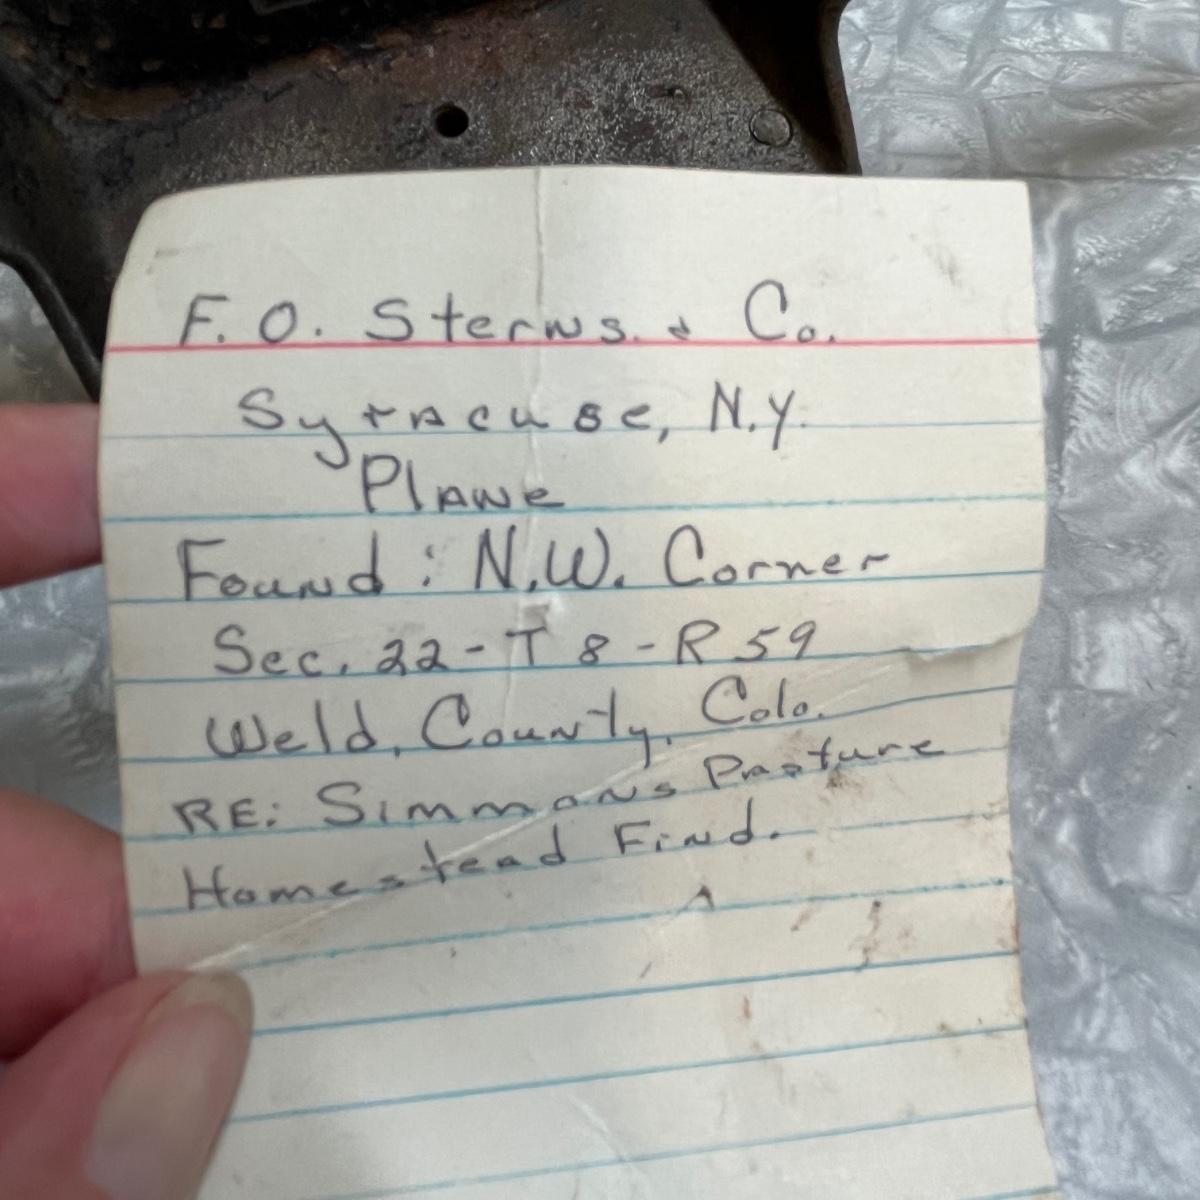 F. O. Sterns. & Co.
Syracuse, N.Y.
Plane
Found: N.W. Corner
Sec. 22 - T 8 - R 59
Weld, County, Colo.
RE: Simmons Pasture
Homestead Find.